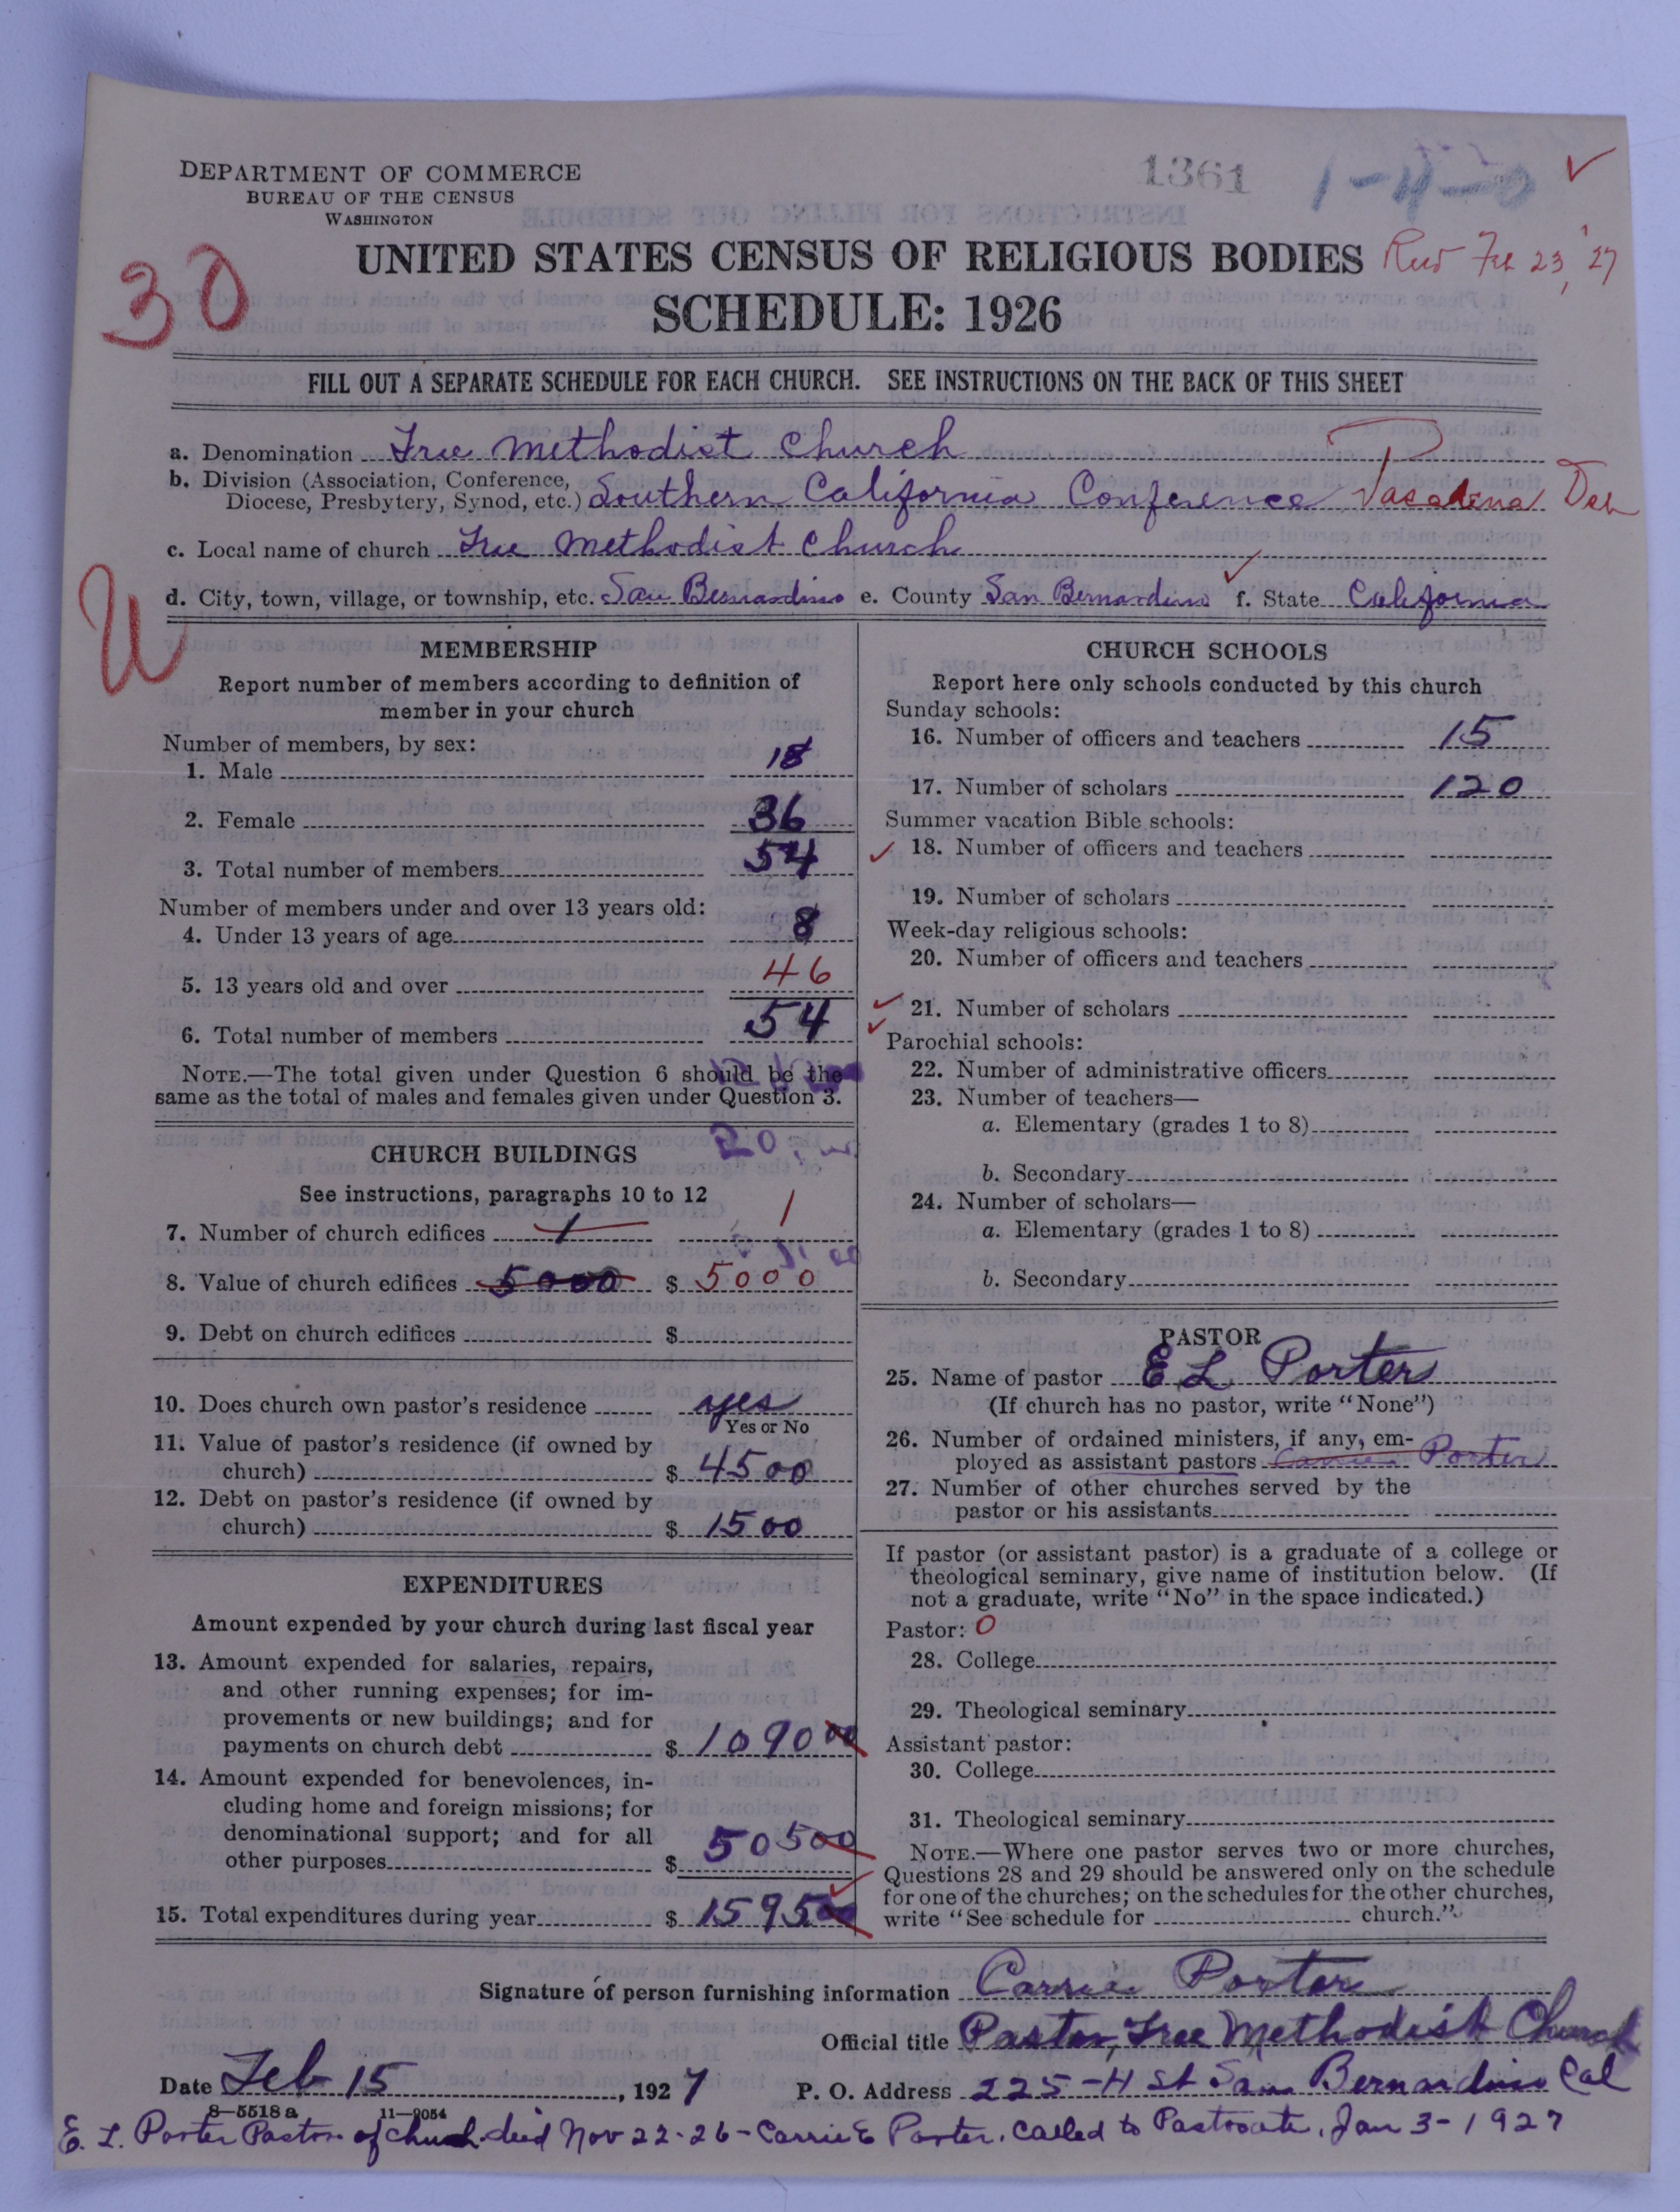 DEPARTMENT OF COMMERCE
BUREAU OF THE CENSUS
WASHINGTON
1361
1-4-0
30
UNITED STATES CENSUS OF RELIGIOUS BODIES
Feb 23, '27
SCHEDULE: 1926
FILL OUT A SEPARATE SCHEDULE FOR EACH CHURCH. SEE INSTRUCTIONS ON THE BACK OF THIS SHEET
a. Denomination Free Methodist Church
b. Division (Association, Conference,
Diocese, Presbytery, Synod, etc.) Southern California Conference Pasadena
c. Local name of church Free Methodist Church
d. City, town, village, or township, etc. San Bernardino e. County San Bernardino f. State California
MEMBERSHIP
Report number of members according to definition of
member in your church
Number of members, by sex:
1. Male 18
2. Female 36
3. Total number of members 54
Number of members under and over 13 years old:
4. Under 13 years of age 8
5. 13 years old and over 46
6. Total number of members 54
NOTE.—The total given under Question 6 should be the
same as the total of males and females given under Question 3.
CHURCH BUILDINGS
See instructions, paragraphs 10 to 12
7. Number of church edifices 1 1
8. Value of church edifices 5000 $ 5000
9. Debt on church edifices $
10. Does church own pastor's residence yes
Yes or No
11. Value of pastor's residence (if owned by
church) $ 4500
12. Debt on pastor's residence (if owned by
church) $ 1500
EXPENDITURES
Amount expended by your church during last fiscal year
13. Amount expended for salaries, repairs,
and other running expenses; for im-
provements or new buildings; and for
payments on church debt $ 1090 00
14. Amount expended for benevolences, in-
cluding home and foreign missions; for
denominational support; and for all
other purposes $ 505 00
15. Total expenditures during year $ 1595 00
CHURCH SCHOOLS
Report here only schools conducted by this church
Sunday schools:
16. Number of officers and teachers 15
17. Number of scholars 120
Summer vacation Bible schools:
18. Number of officers and teachers
19. Number of scholars
Week-day religious schools:
20. Number of officers and teachers
21. Number of scholars
Parochial schools:
22. Number of administrative officers
23. Number of teachers—
a. Elementary (grades 1 to 8)
b. Secondary
24. Number of scholars—
a. Elementary (grades 1 to 8)
b. Secondary
PASTOR
25. Name of pastor E L Porter
(If church has no pastor, write "None")
26. Number of ordained ministers, if any, em-
ployed as assistant pastors Carrie Porter
27. Number of other churches served by the
pastor or his assistants
If pastor (or assistant pastor) is a graduate of a college or
theological seminary, give name of institution below. (If
not a graduate, write "No" in the space indicated.)
Pastor: 0
28. College
29. Theological seminary
Assistant pastor:
30. College
31. Theological seminary
NOTE.—Where one pastor serves two or more churches,
Questions 28 and 29 should be answered only on the schedule
for one of the churches; on the schedules for the other churches,
write "See schedule for church."
Signature of person furnishing information Carrie Porter
Official title Pastor, Free Methodist Church
Date Feb 15, 1927 P. O. Address 225-H St San Bernardino Cal
8-5518a 11-9054
E. L. Porter Pastor of church died Nov 22-26- Carrie E Porter. called to Pastorate, Jan 3-1927